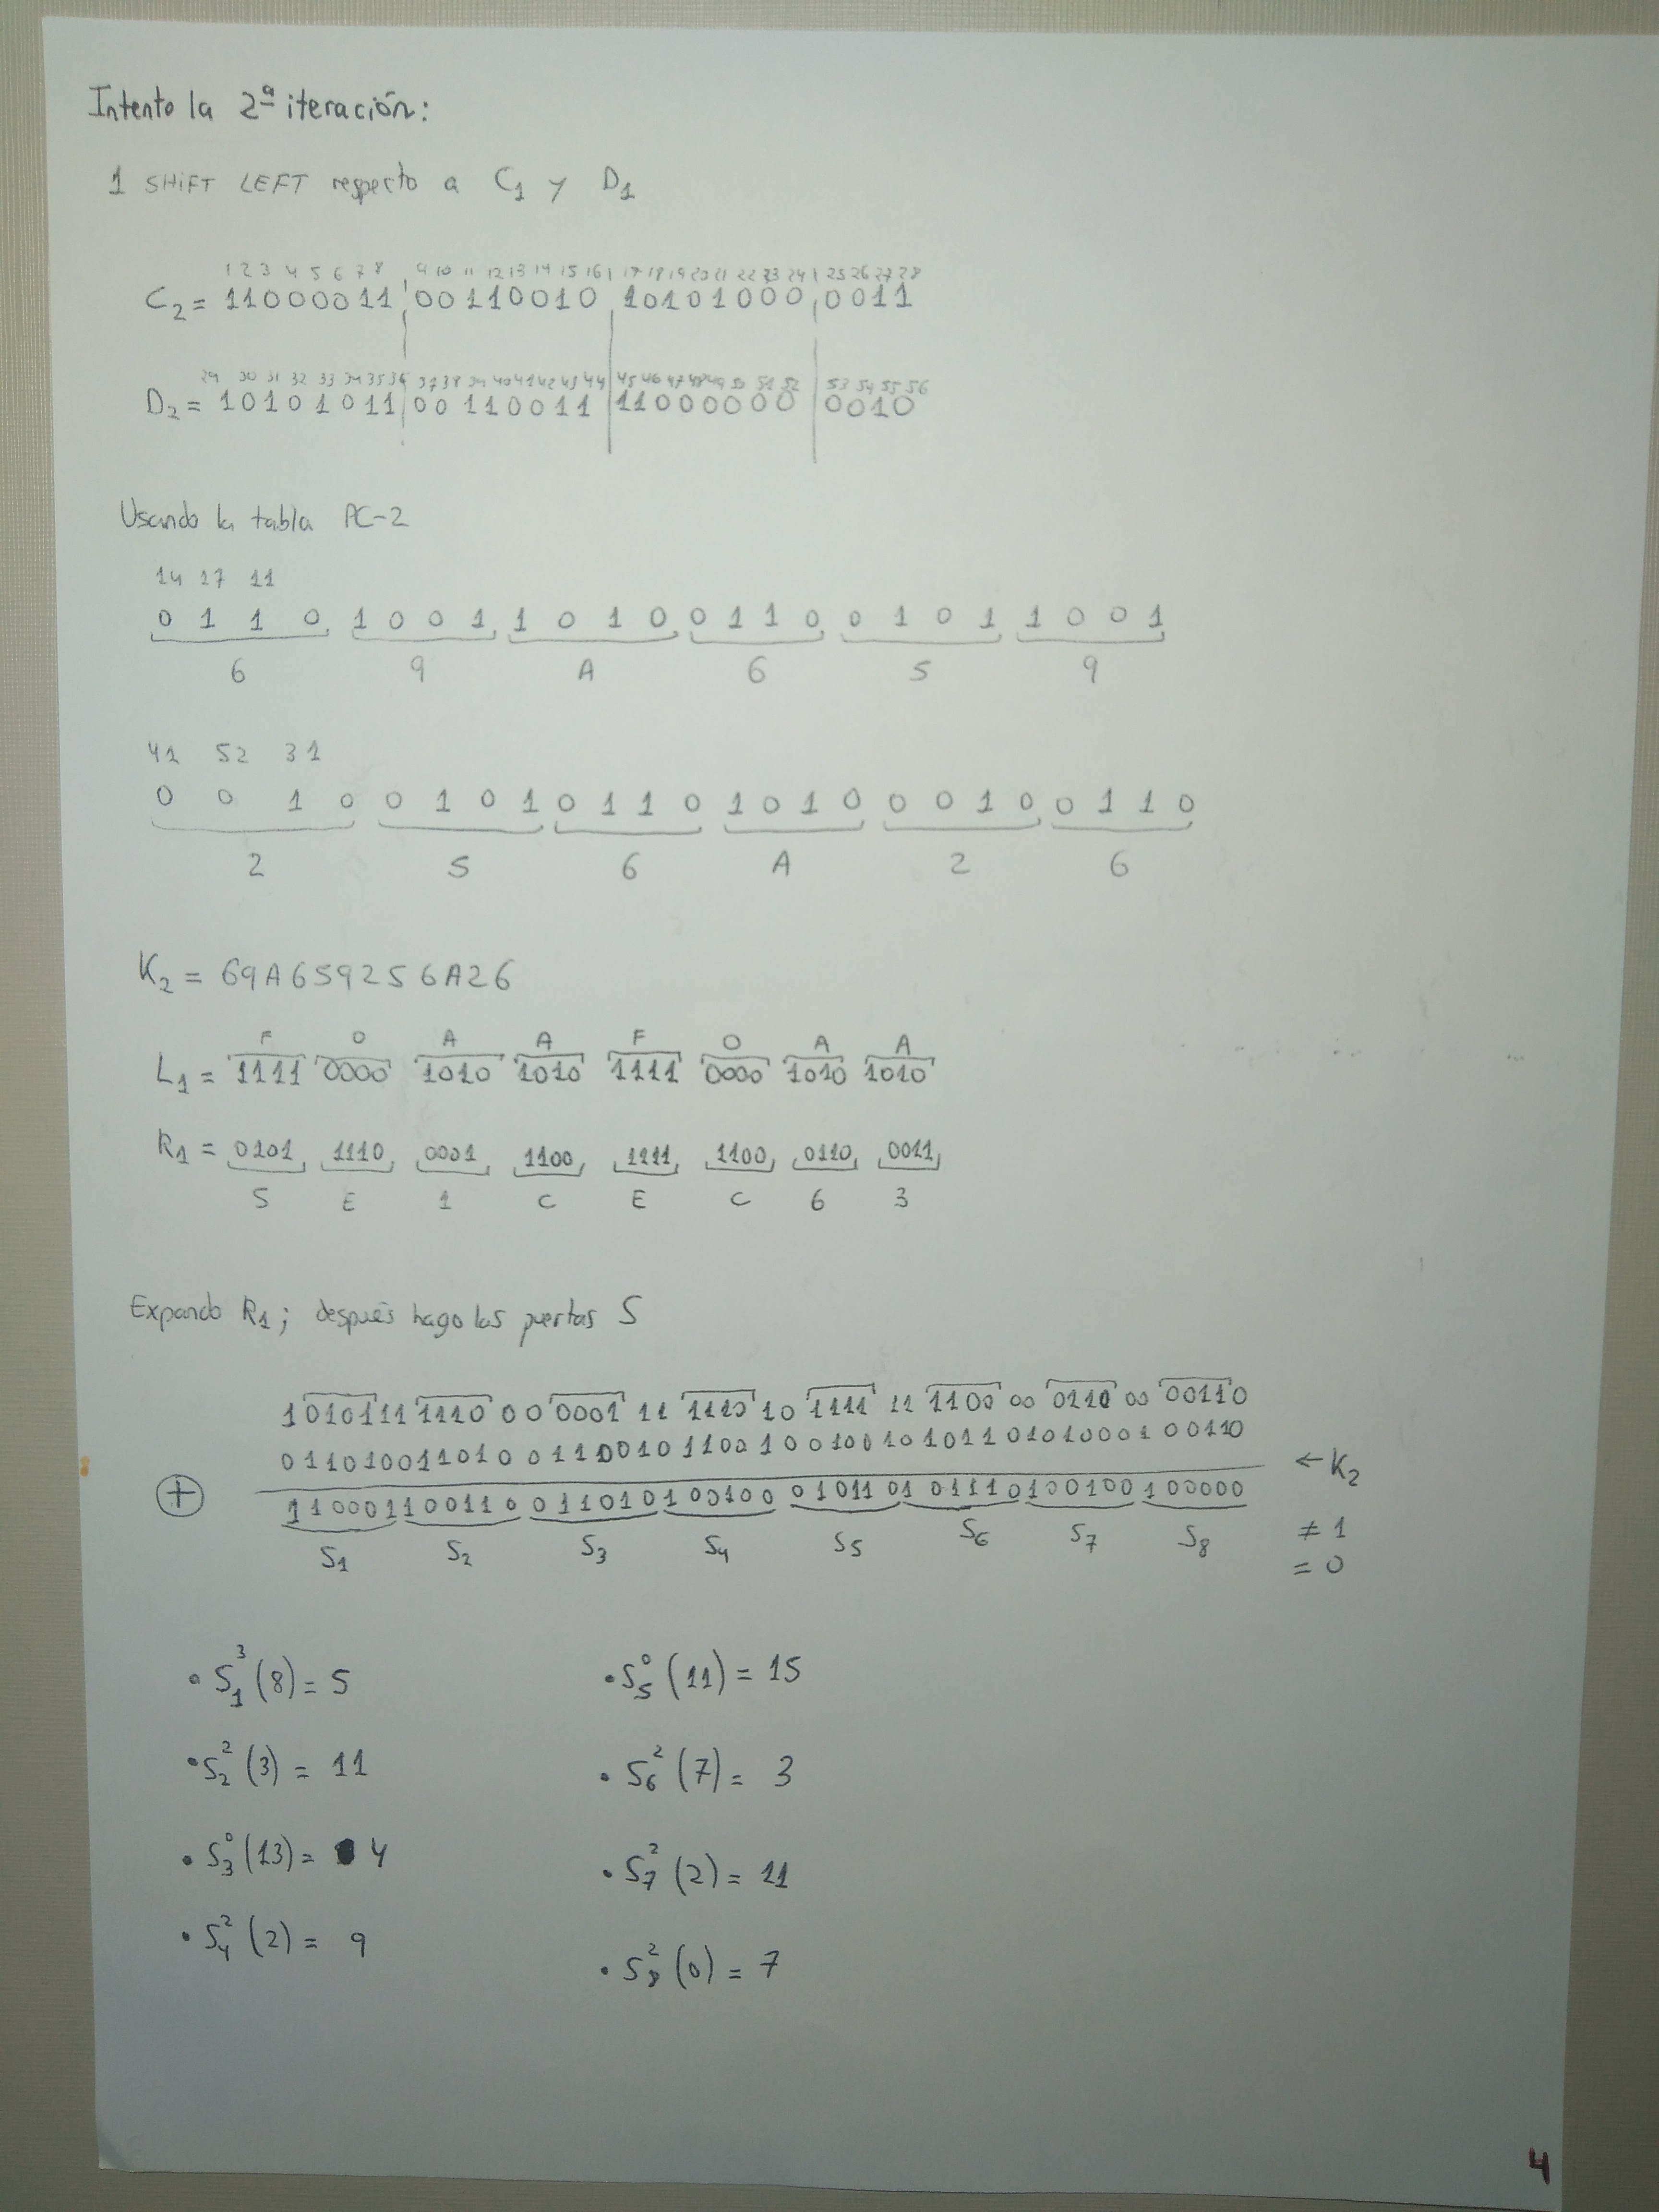 Intento la 2ª iteración:
1 SHIFT LEFT respecto a C1 y D1
1 2 3 4 5 6 7 8 9 10 11 12 13 14 15 16 17 18 19 20 21 22 23 24 25 26 27 28
C2 = 11000011 00110010 10101000 0011
29 30 31 32 33 34 35 36 37 38 39 40 41 42 43 44 45 46 47 48 49 50 51 52 53 54 55 56
D2 = 10101011 00110011 11000000 0010
Usando la tabla PC-2
14 17 11
0 1 1 0 1 0 0 1 1 0 1 0 0 1 1 0 0 1 0 1 1 0 0 1
6 9 A 6 5 9
41 52 31
0 0 1 0 0 1 0 1 0 1 1 0 1 0 1 0 0 0 1 0 0 1 1 0
2 5 6 A 2 6
K2 = 69A659256A26
F 0 A A F 0 A A
L1 = 1111 0000 1010 1010 1111 0000 1010 1010
R1 = 0101 1110 0001 1100 1111 1100 0110 0011
5 E 1 C E C 6 3
Expando R1; después hago las puertas S
1 0101 11 1110 00 0001 11 1110 10 1111 11 1100 00 0110 00 00110
011010011010 011001011001 001001 010110 101000 100110 ← K2
⊕ 110001 100110 011010 100100 010110 101110 100100 100000
S1 S2 S3 S4 S5 S6 S7 S8
≠ 1
= 0
• S1^3 (8) = 5
• S5^0 (11) = 15
• S2^2 (3) = 11
• S6^2 (7) = 3
• S3^0 (13) = 4
• S7^2 (2) = 11
• S4^2 (2) = 9
• S8^2 (0) = 7
4